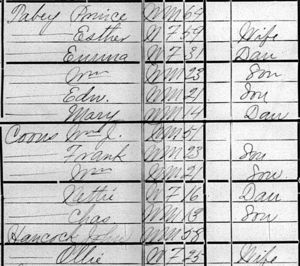 Pabey Prince W M 64
Esther W F 59 Wife
Emma W F 31 Dau
Wm W M 23 Son
Edw. W M 21 Son
Mary W M 14 Dau
Coons Wm J. W M 51
Frank W M 23 Son
Wm W M 21 Son
Nettie W F 16 Dau
Chas. W M 13 Son
Hancock John W M 58
Ollie W F 25 Wife